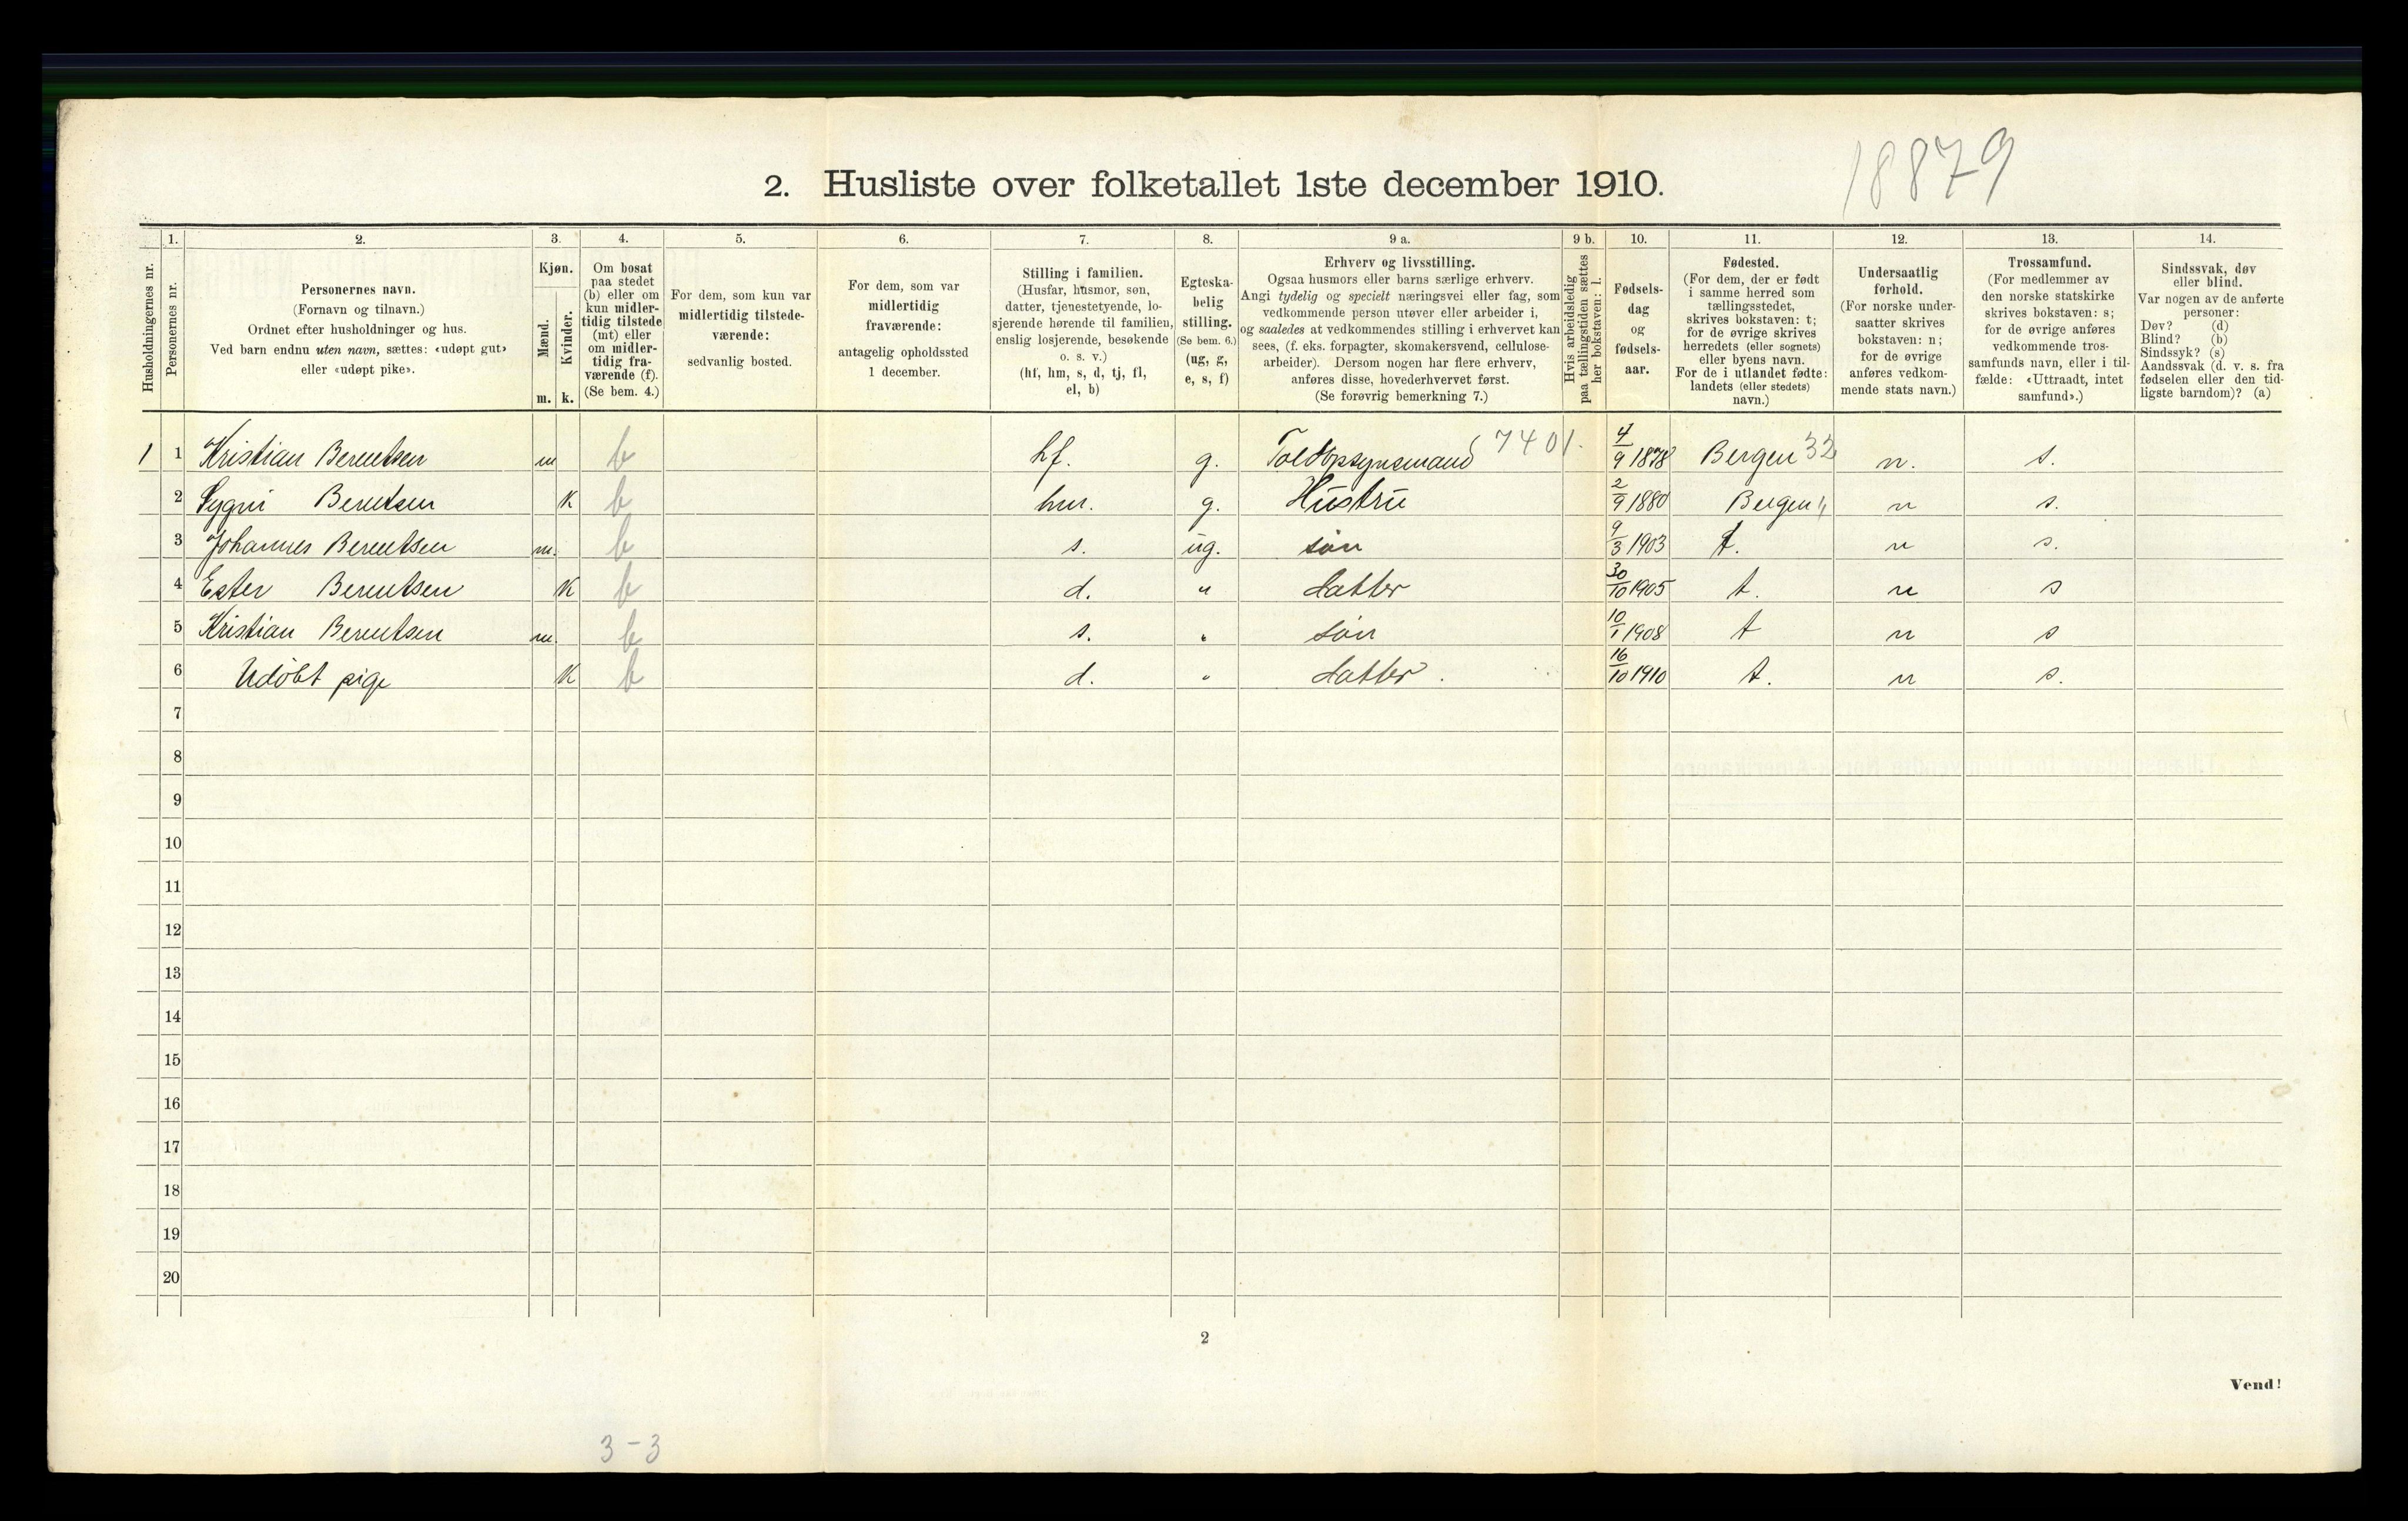 18879
2. Husliste over folketallet 1ste december 1910.
Husholdningernes nr.
1.
Personernes nr.
2.
Personernes navn.
(Fornavn og tilnavn.)
Ordnet efter husholdninger og hus.
Ved barn endnu uten navn, sættes: «udøpt gut»
eller «udøpt pike».
3.
Kjøn.
Mænd.
Kvinder.
m. k.
4.
Om bosat
paa stedet
(b) eller om
kun midler-
tidig tilstede
(mt) eller
om midler-
tidig fra-
værende (f).
(Se bem. 4.)
5.
For dem, som kun var
midlertidig tilstede-
værende:
sedvanlig bosted.
6.
For dem, som var
midlertidig
fraværende:
antagelig opholdssted
1 december.
7.
Stilling i familien.
(Husfar, husmor, søn,
datter, tjenestetyende, lo-
sjerende hørende til familien,
enslig losjerende, besøkende
o. s. v.)
(hf, hm, s, d, tj, fl,
el, b)
8.
Egteska-
belig
stilling.
(Se bem. 6.)
(ug, g,
e, s, f)
9 a.
Erhverv og livsstilling.
Ogsaa husmors eller barns særlige erhverv.
Angi tydelig og specielt næringsvei eller fag, som
vedkommende person utøver eller arbeider i,
og saaledes at vedkommendes stilling i erhvervet kan
sees, (f. eks. forpagter, skomakersvend, cellulose-
arbeider). Dersom nogen har flere erhverv,
anføres disse, hovederhvervet først.
(Se forøvrig bemerkning 7.)
9 b.
Hvis arbeidsledig
paa tællingstiden sættes
her bokstaven: l.
10.
Fødsels-
dag
og
fødsels-
aar.
11.
Fødested.
(For dem, der er født
i samme herred som
tællingsstedet,
skrives bokstaven: t;
for de øvrige skrives
herredets (eller sognets)
eller byens navn.
For de i utlandet fødte:
landets (eller stedets)
navn.)
12.
Undersaatlig
forhold.
(For norske under-
saatter skrives
bokstaven: n;
for de øvrige
anføres vedkom-
mende stats navn.)
13.
Trossamfund.
(For medlemmer av
den norske statskirke
skrives bokstaven: s;
for de øvrige anføres
vedkommende tros-
samfunds navn, eller i til-
fælde: «Uttraadt, intet
samfund».)
14.
Sindssvak, døv
eller blind.
Var nogen av de anførte
personer:
Døv? (d)
Blind? (b)
Sindssyk? (s)
Aandssvak (d. v. s. fra
fødselen eller den tid-
ligste barndom)? (a)
1 1 Kristian Berentsen m b hf. g. Toldopsynsmand 7401. 4/9 1878 Bergen 32 n. s.
2 Sygni Berentsen K b hm. g. Hustru 2/9 1880 Bergen " n s.
3 Johannes Berentsen m. b s. ug. søn 9/3 1903 t. n s.
4 Ester Berentsen K b d. " datter 30/10 1905 t. n s
5 Kristian Berentsen m. b s. " søn 10/1 1908 t n s
6 Udöbt pige K b d. " datter. 16/10 1910 t. n s.
7
8
9
10
11
12
13
14
15
16
17
18
19
20
2
Vend!
3-3